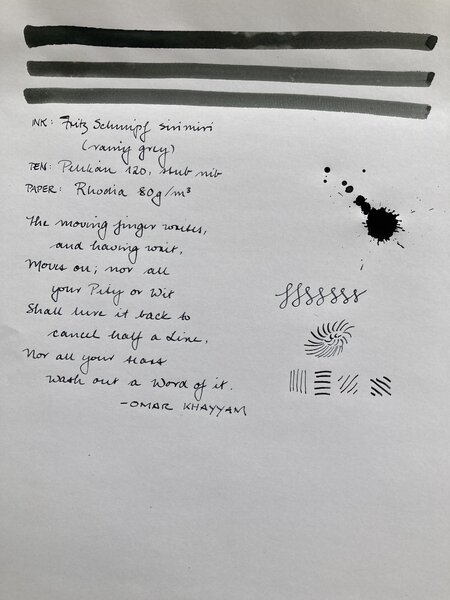 INK: Fritz Schimpf Sirimiri
(rainy grey)
PEN: Pelikan 120, stub nib
PAPER: Rhodia 80g/m³
The moving finger writes,
and having writ,
Moves on; nor all
your Piety or Wit
Shall lure it back to
cancel half a Line,
Nor all your tears
Wash out a Word of it.
-OMAR KHAYYAM